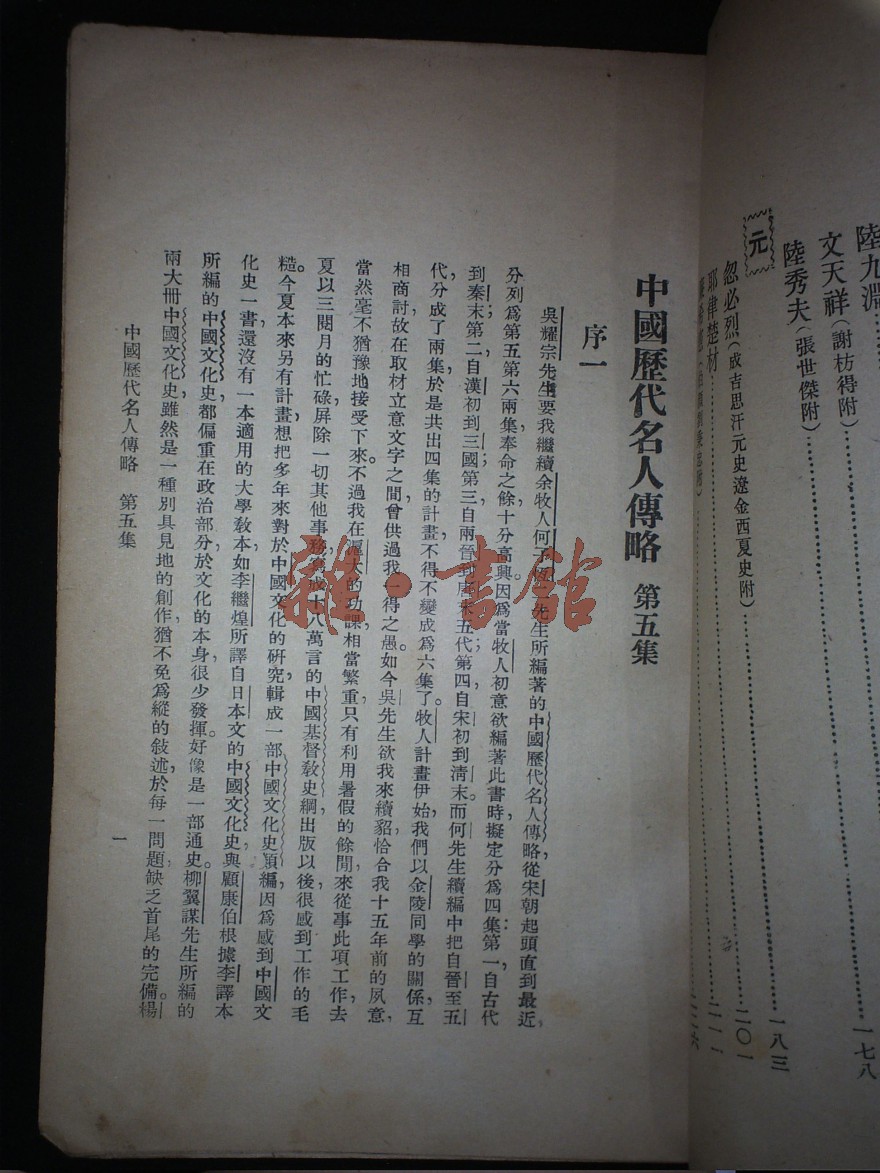 陸九淵……………一七八
文天祥(謝枋得附)……………
陸秀夫(張世傑附)……………一八三
元
忽必烈(成吉思汗元史遼金西夏史附)……………二〇一
耶律楚材……………二一一
中國歷代名人傳略 第五集
序一
吳耀宗先生要我繼續余牧人何子恆二先生所編著的中國歷代名人傳略從宋朝起頭直到最近,
分列爲第五第六兩集奉命之餘十分高興。因爲當牧人初意欲編著此書時擬定分爲四集:第一,自古代
到秦末第二自漢初到三國;第三自兩晉到唐末五代第四自宋初到淸末。而何先生續編中把自晉至五
代,分成了兩集於是共出四集的計畫,不得不變成爲六集了。牧人計畫伊始,我們以金陵同學的關係,互
相商討,故在取材立意文字之間曾供過我一得之愚。如今吳先生欲我來續貂恰合我十五年前的夙意,
當然毫不猶豫地接受下來。不過我在滬大的功課,相當繁重只有利用暑假的餘閒,來從事此項工作,去
夏以三閱月的忙碌屏除一切其他事務,寫成十八萬言的中國基督敎史綱,出版以後,很感到工作的毛
糙。今夏本來另有計畫想把多年來對於中國文化的硏究,輯成一部中國文化史類編,因爲感到中國文
化史一書,還沒有一本適用的大學敎本,如李繼煌所譯自日本文的中國文化史與顧康伯根據李譯本
所編的中國文化史,都偏重在政治部分,於文化的本身,很少發揮。好像是一部通史。柳翼謀先生所編的
兩大冊中國文化史,雖然是一種別具見地的創作,猶不免爲縱的敍述,於每一問題,缺乏首尾的完備。楊
中國歷代名人傳略 第五集
一
雜·書館